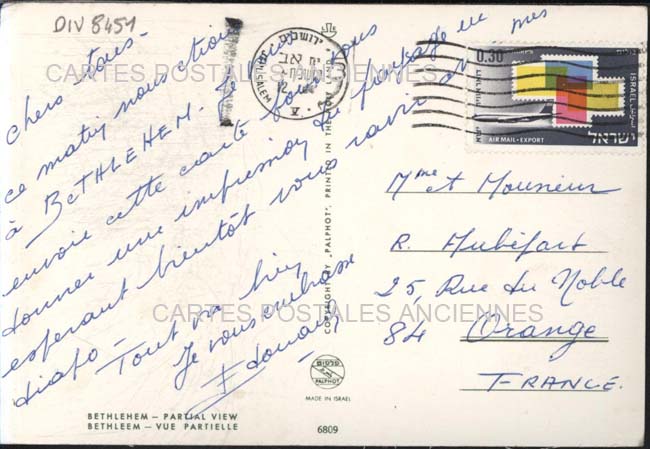 DIV 8451
Chers tous -
ce matin nous étions
à BETHLEHEM. Je vous
envoie cette carte pour vous
donner une impression du paysage en
esperant bientôt vous revoir
diapo - Tout va bien
Je vous embrasse
Edouard
CARTES POSTALES ANCIENNES
CARTES POSTALES ANCIENNES
ירושלים
JERUSALEM
0.30
ISRAEL
ישראל
AIR MAIL • EXPORT
COPYRIGHT BY „PALPHOT”, PRINTED IN THE
Mme et Monsieur
R. Aubéfart
25, Rue du Noble
84 Orange
FRANCE.
PALPHOT
MADE IN ISRAEL
BETHLEHEM — PARTIAL VIEW
BETHLEEM — VUE PARTIELLE
6809